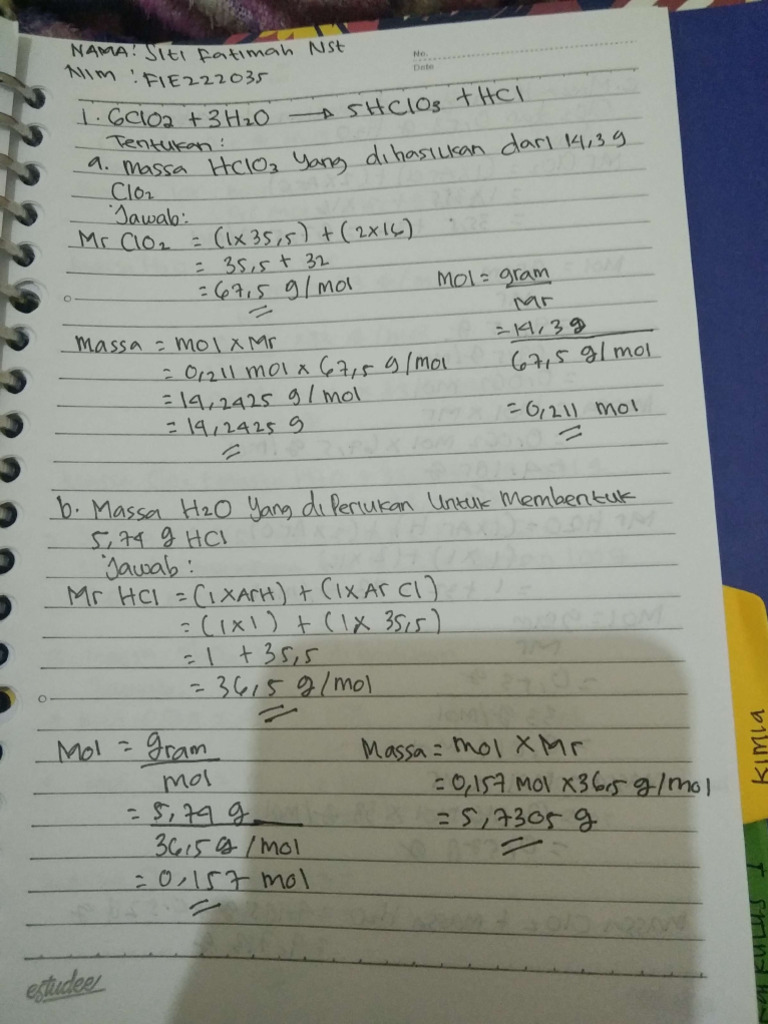 NAMA: Siti Fatimah Nst
No.
NIM : F1E222035
Date
1. 6ClO2 + 3H2O → 5HClO3 + HCl
Tentukan:
a. Massa HClO3 yang dihasilkan dari 14,3 g
ClO2
Jawab:
Mr ClO2 = (1x35,5) + (2x16)
= 35,5 + 32
= 67,5 g/mol
Mol = gram
Mr
= 14,3 g
67,5 g/mol
= 0,211 mol
massa = mol x Mr
= 0,211 mol x 67,5 g/mol
= 14,2425 g/mol
= 14,2425 g
b. Massa H2O yang diperlukan untuk membentuk
5,74 g HCl
Jawab:
Mr HCl = (1xArH) + (1xAr Cl)
= (1x1) + (1x 35,5)
= 1 + 35,5
= 36,5 g/mol
Mol = gram
mol
= 5,74 g
36,5 g/mol
= 0,157 mol
Massa = mol x Mr
= 0,157 mol x 36,5 g/mol
= 5,7305 g
estudee
KIMIA
KALKULUS I